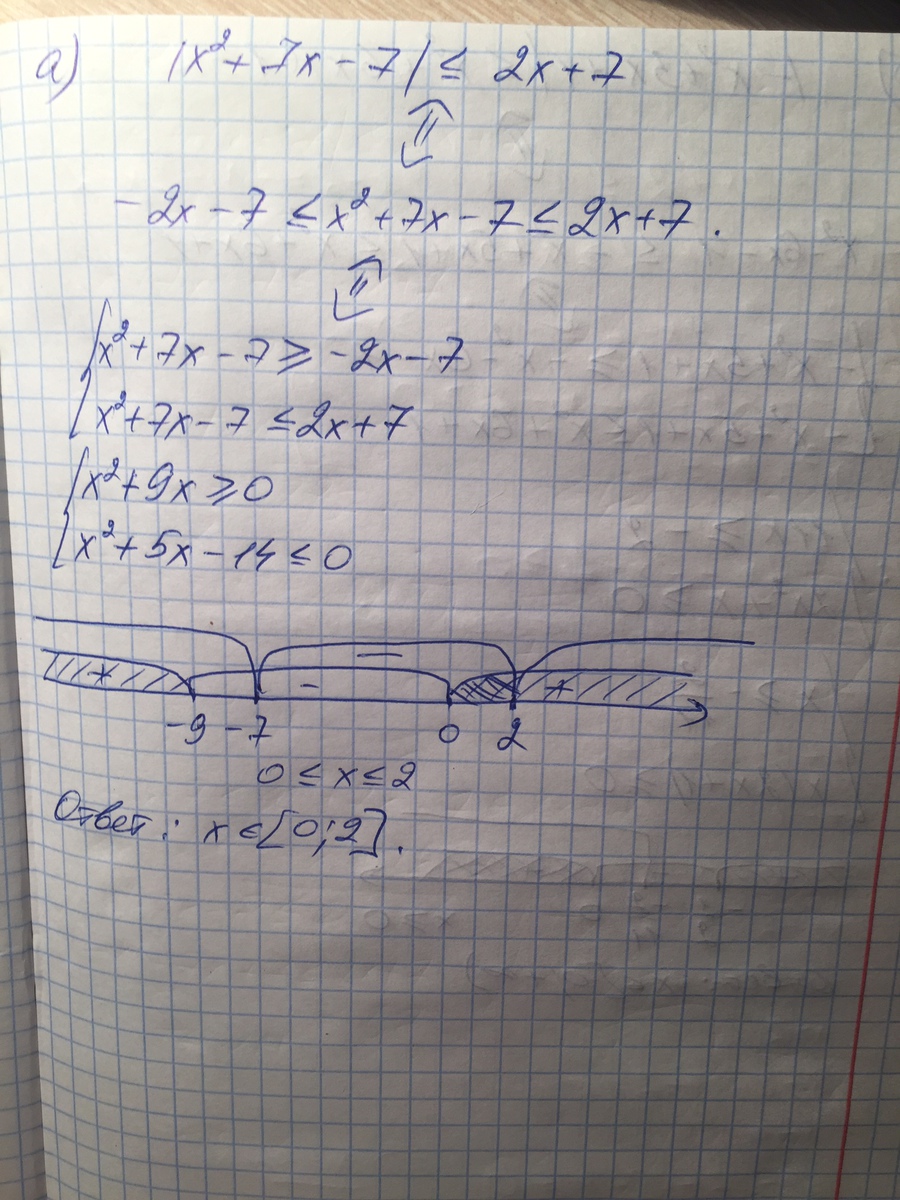 а) |x²+7x-7|≤ 2x+7
⇕
-2x-7 ≤x²+7x-7≤2x+7.
⇕
{x²+7x-7≥-2x-7
x²+7x-7 ≤2x+7
{x²+9x≥0
x²+5x-14≤0
+ - - +
-9 -7 0 2
0≤x≤2
Ответ: x∈[0;2].